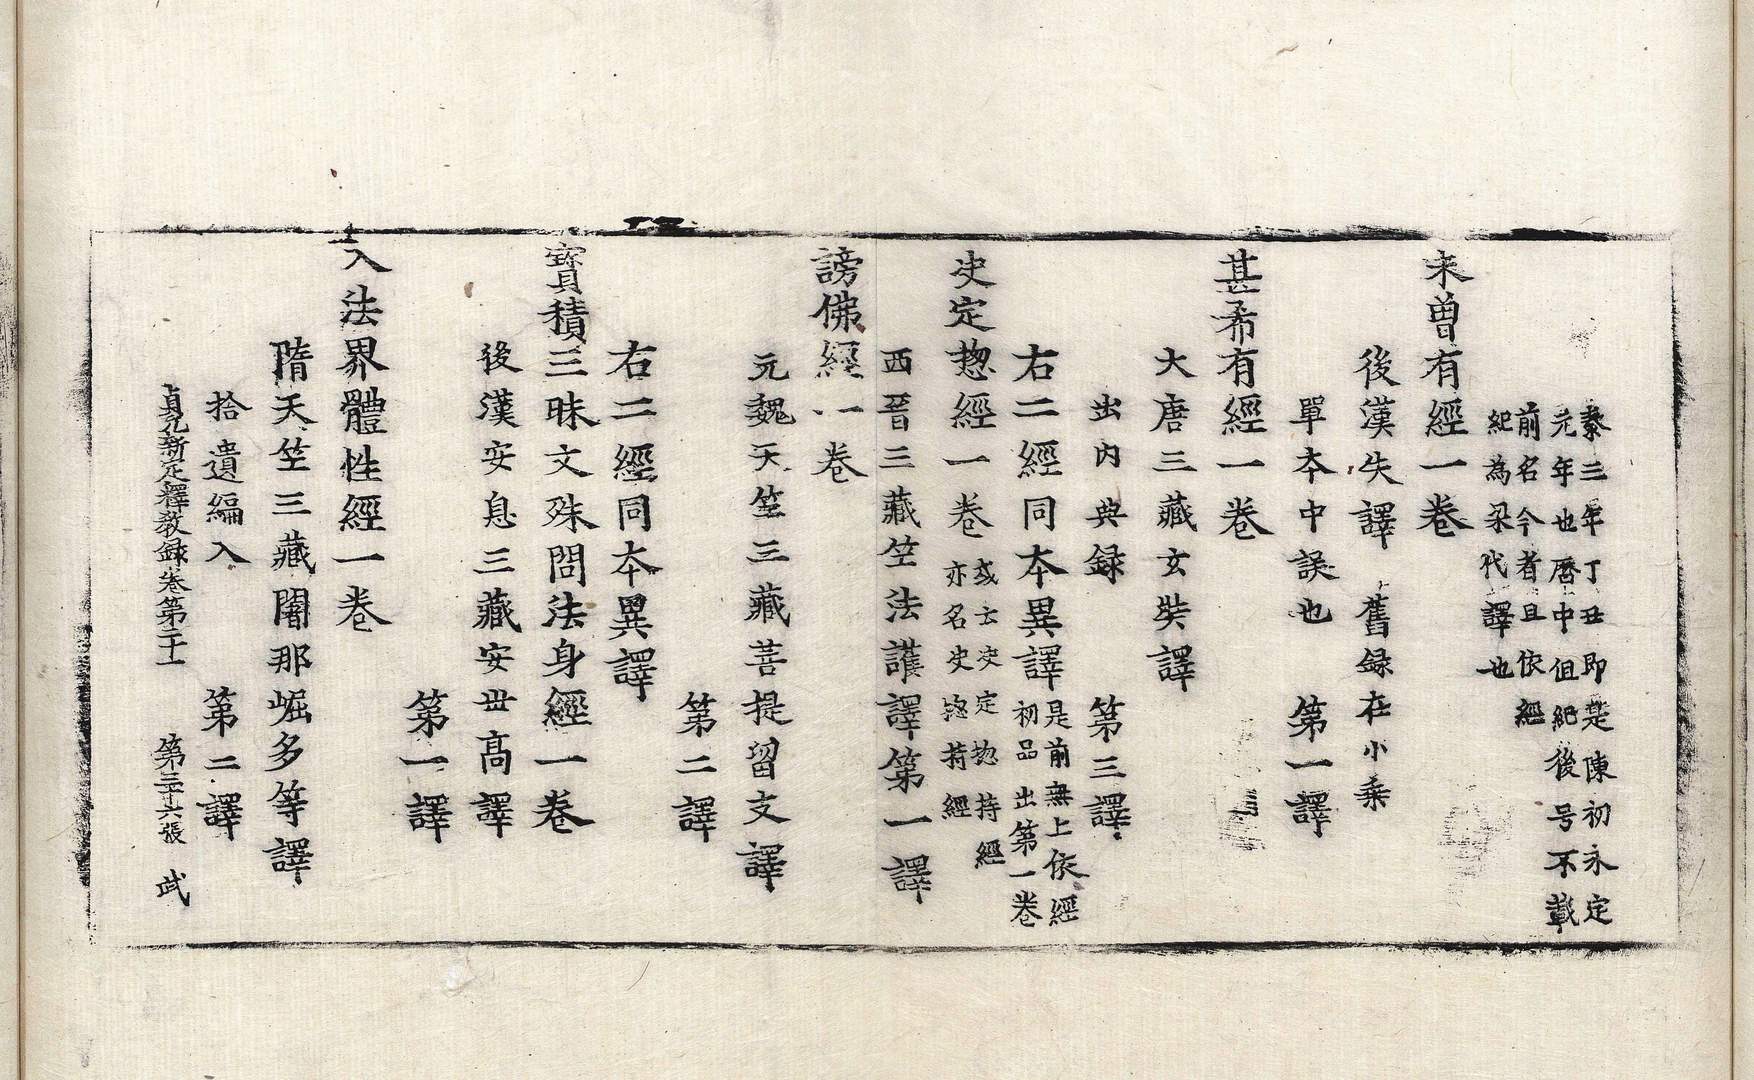 泰三年丁丑即是陳初永定
元年也曆中但紀後号不載
前名今者且依經
紀為梁代譯也
未曾有經一卷
後漢失譯 舊録在小乗
單夲中誤也 第一譯
甚希有經一卷
大唐三藏玄奘譯
出内典録 第三譯
右二經同夲異譯 是前無上依經
初品出第一卷
决定揔經一卷 或云决定揔持經
亦名决揔持經
西晉三藏竺法護譯第一譯
謗佛經一卷
元魏天竺三藏菩提留支譯
第二譯
右二經同夲異譯
寶積三昧文殊問法身經一卷
後漢安息三藏安丗髙譯
第一譯
入法界體性經一卷
隋天竺三藏闍那崛多等譯
拾遺編入 第二譯
貞元新定釋教録卷第二十一 第三十六張 武